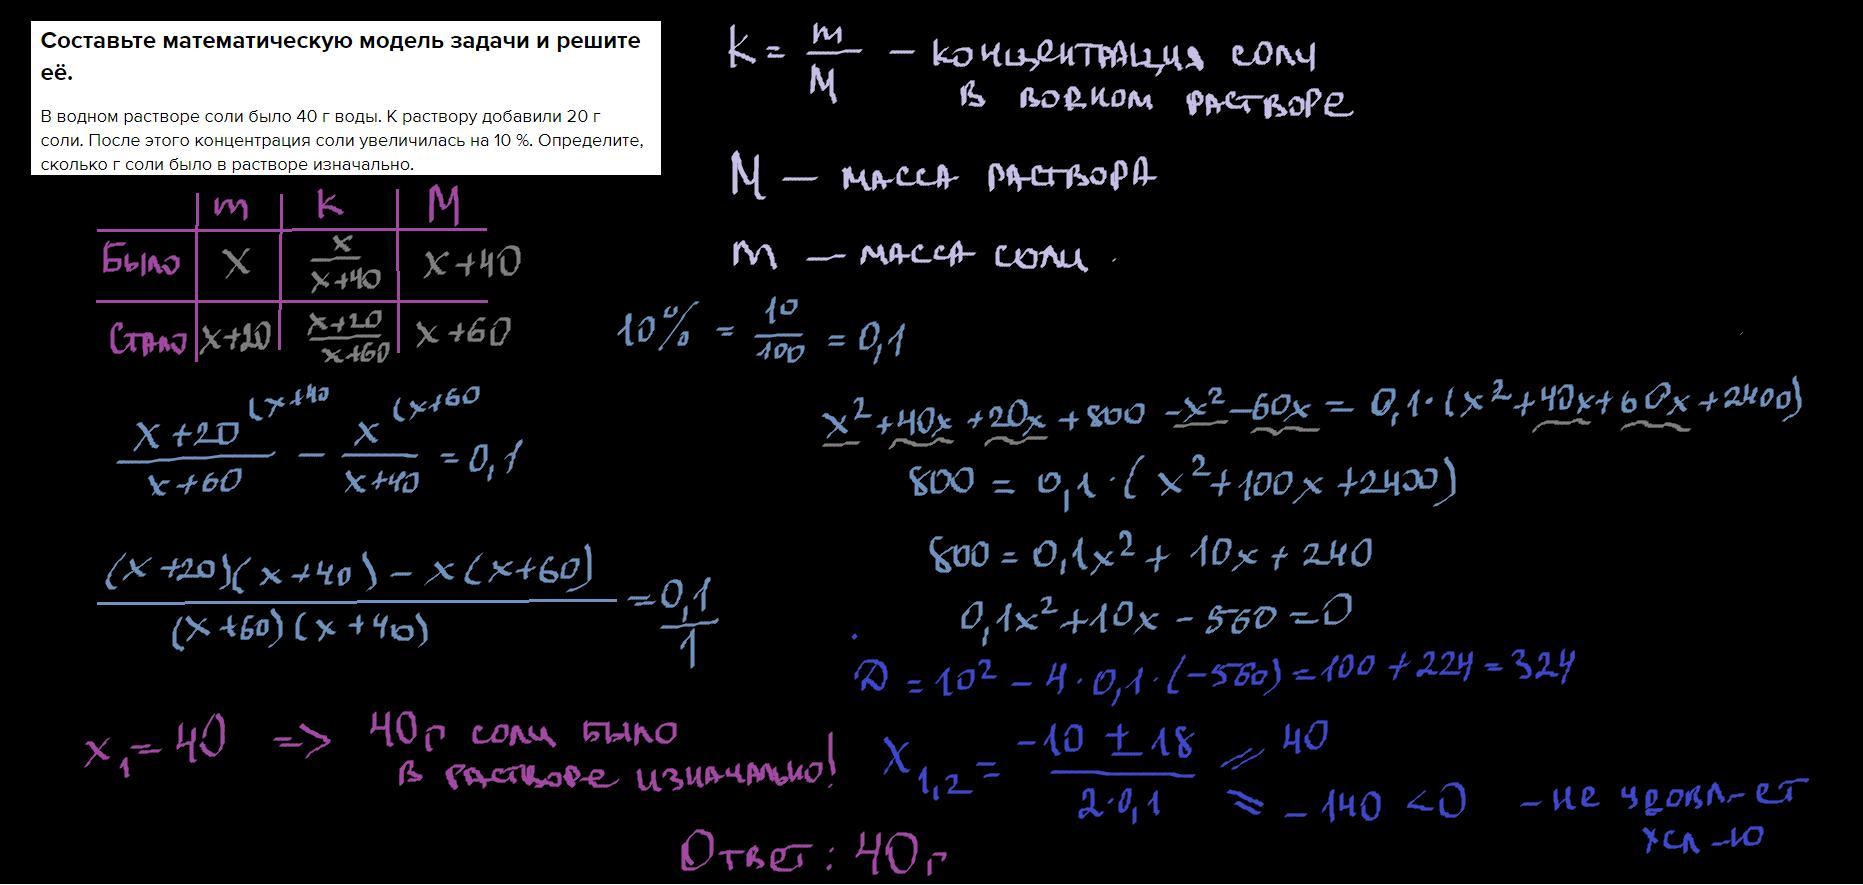 Составьте математическую модель задачи и решите
её.
В водном растворе соли было 40 г воды. К раствору добавили 20 г
соли. После этого концентрация соли увеличилась на 10 %. Определите,
сколько г соли было в растворе изначально.
K = m/M — концентрация соли
в водном растворе
M — масса раствора
m — масса соли
m K M
Было x x/(x+40) x+40
Стало x+20 (x+20)/(x+60) x+60
10% = 10/100 = 0,1
(x+20)/(x+60) (x+40 − x/(x+40) (x+60 = 0,1
((x+20)(x+40) − x(x+60))/((x+60)(x+40)) = 0,1/1
x²+40x+20x+800−x²−60x = 0,1·(x²+40x+60x+2400)
800 = 0,1·(x²+100x+2400)
800 = 0,1x² + 10x + 240
0,1x²+10x−560=0
D = 10² − 4·0,1·(−560) = 100 + 224 = 324
x₁,₂ = (−10 ± 18)/(2·0,1) = 40
= −140 <0 – не удовл–ет
усл–ю
x₁ = 40 => 40г соли было
в растворе изначально!
Ответ: 40г